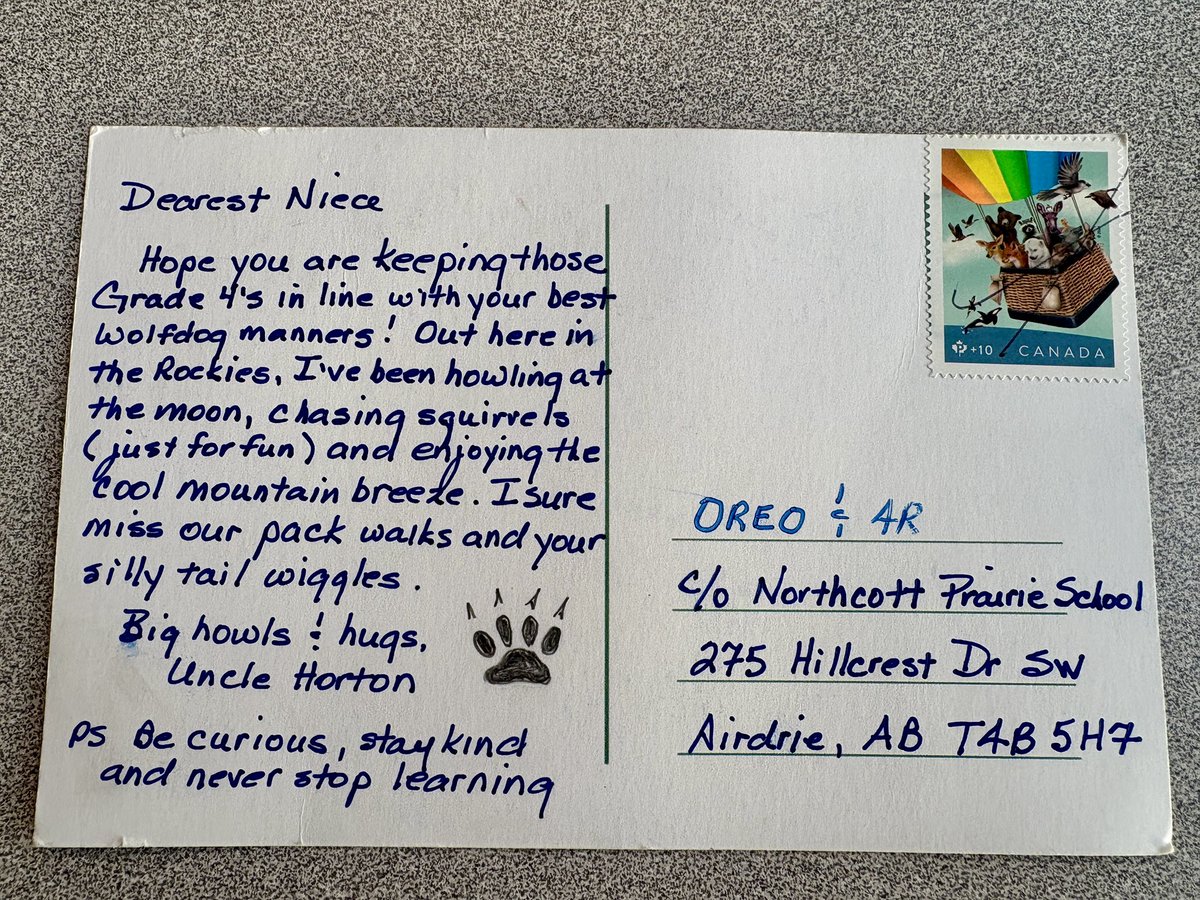 Dearest Niece
Hope you are keeping those
Grade 4's in line with your best
wolfdog manners! Out here in
the Rockies, I've been howling at
the moon, chasing squirrels
(just for fun) and enjoying the
cool mountain breeze. I sure
miss our pack walks and your
silly tail wiggles.
Big howls & hugs,
Uncle Horton
PS Be curious, stay kind
and never stop learning
P +10 CANADA
OREO & 4R
c/o Northcott Prairie School
275 Hillcrest Dr SW
Airdrie, AB T4B 5H7